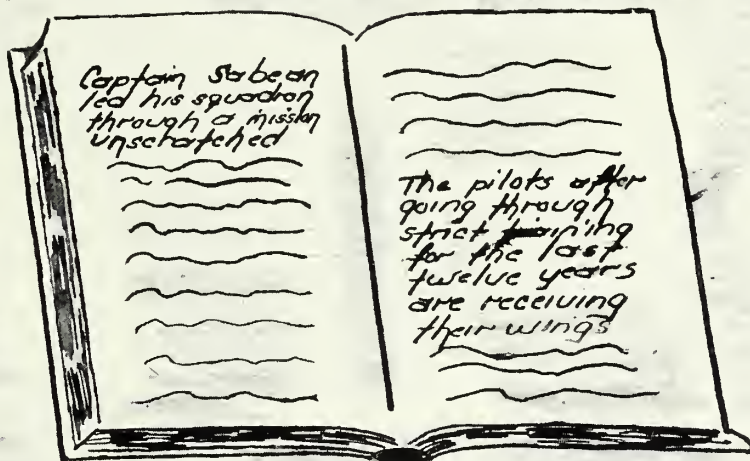 Captain Sabean
led his squadron
through a mission
unscratched
The pilots after
going through
strict training
for the last
twelve years
are receiving
their wings